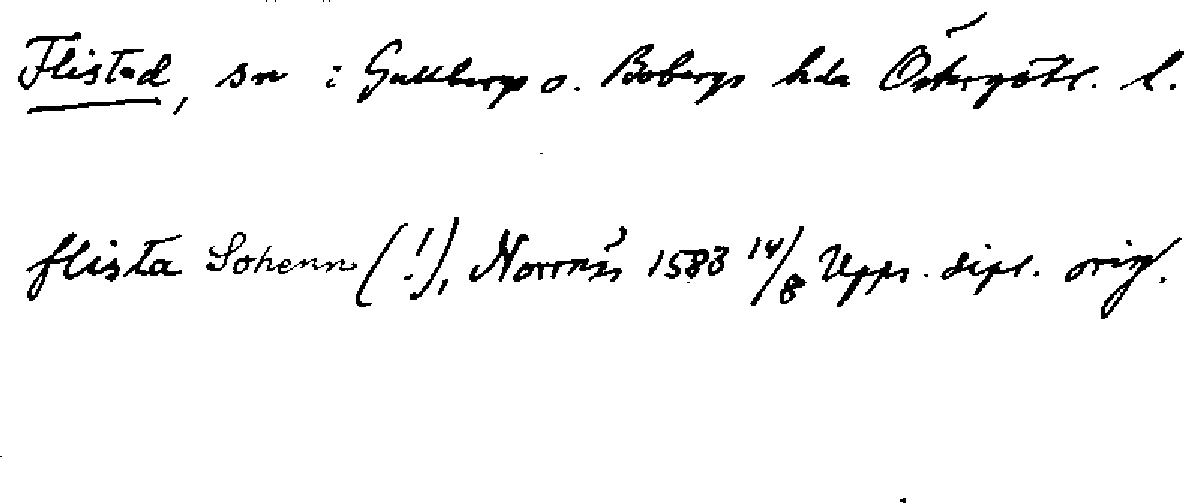 Flistad, sn i Gullbergs o. Bobergs hda Östergötl. l.
flista Sohenn (!), Norrnäs 1583 14/8 Upps. dipl. orig.